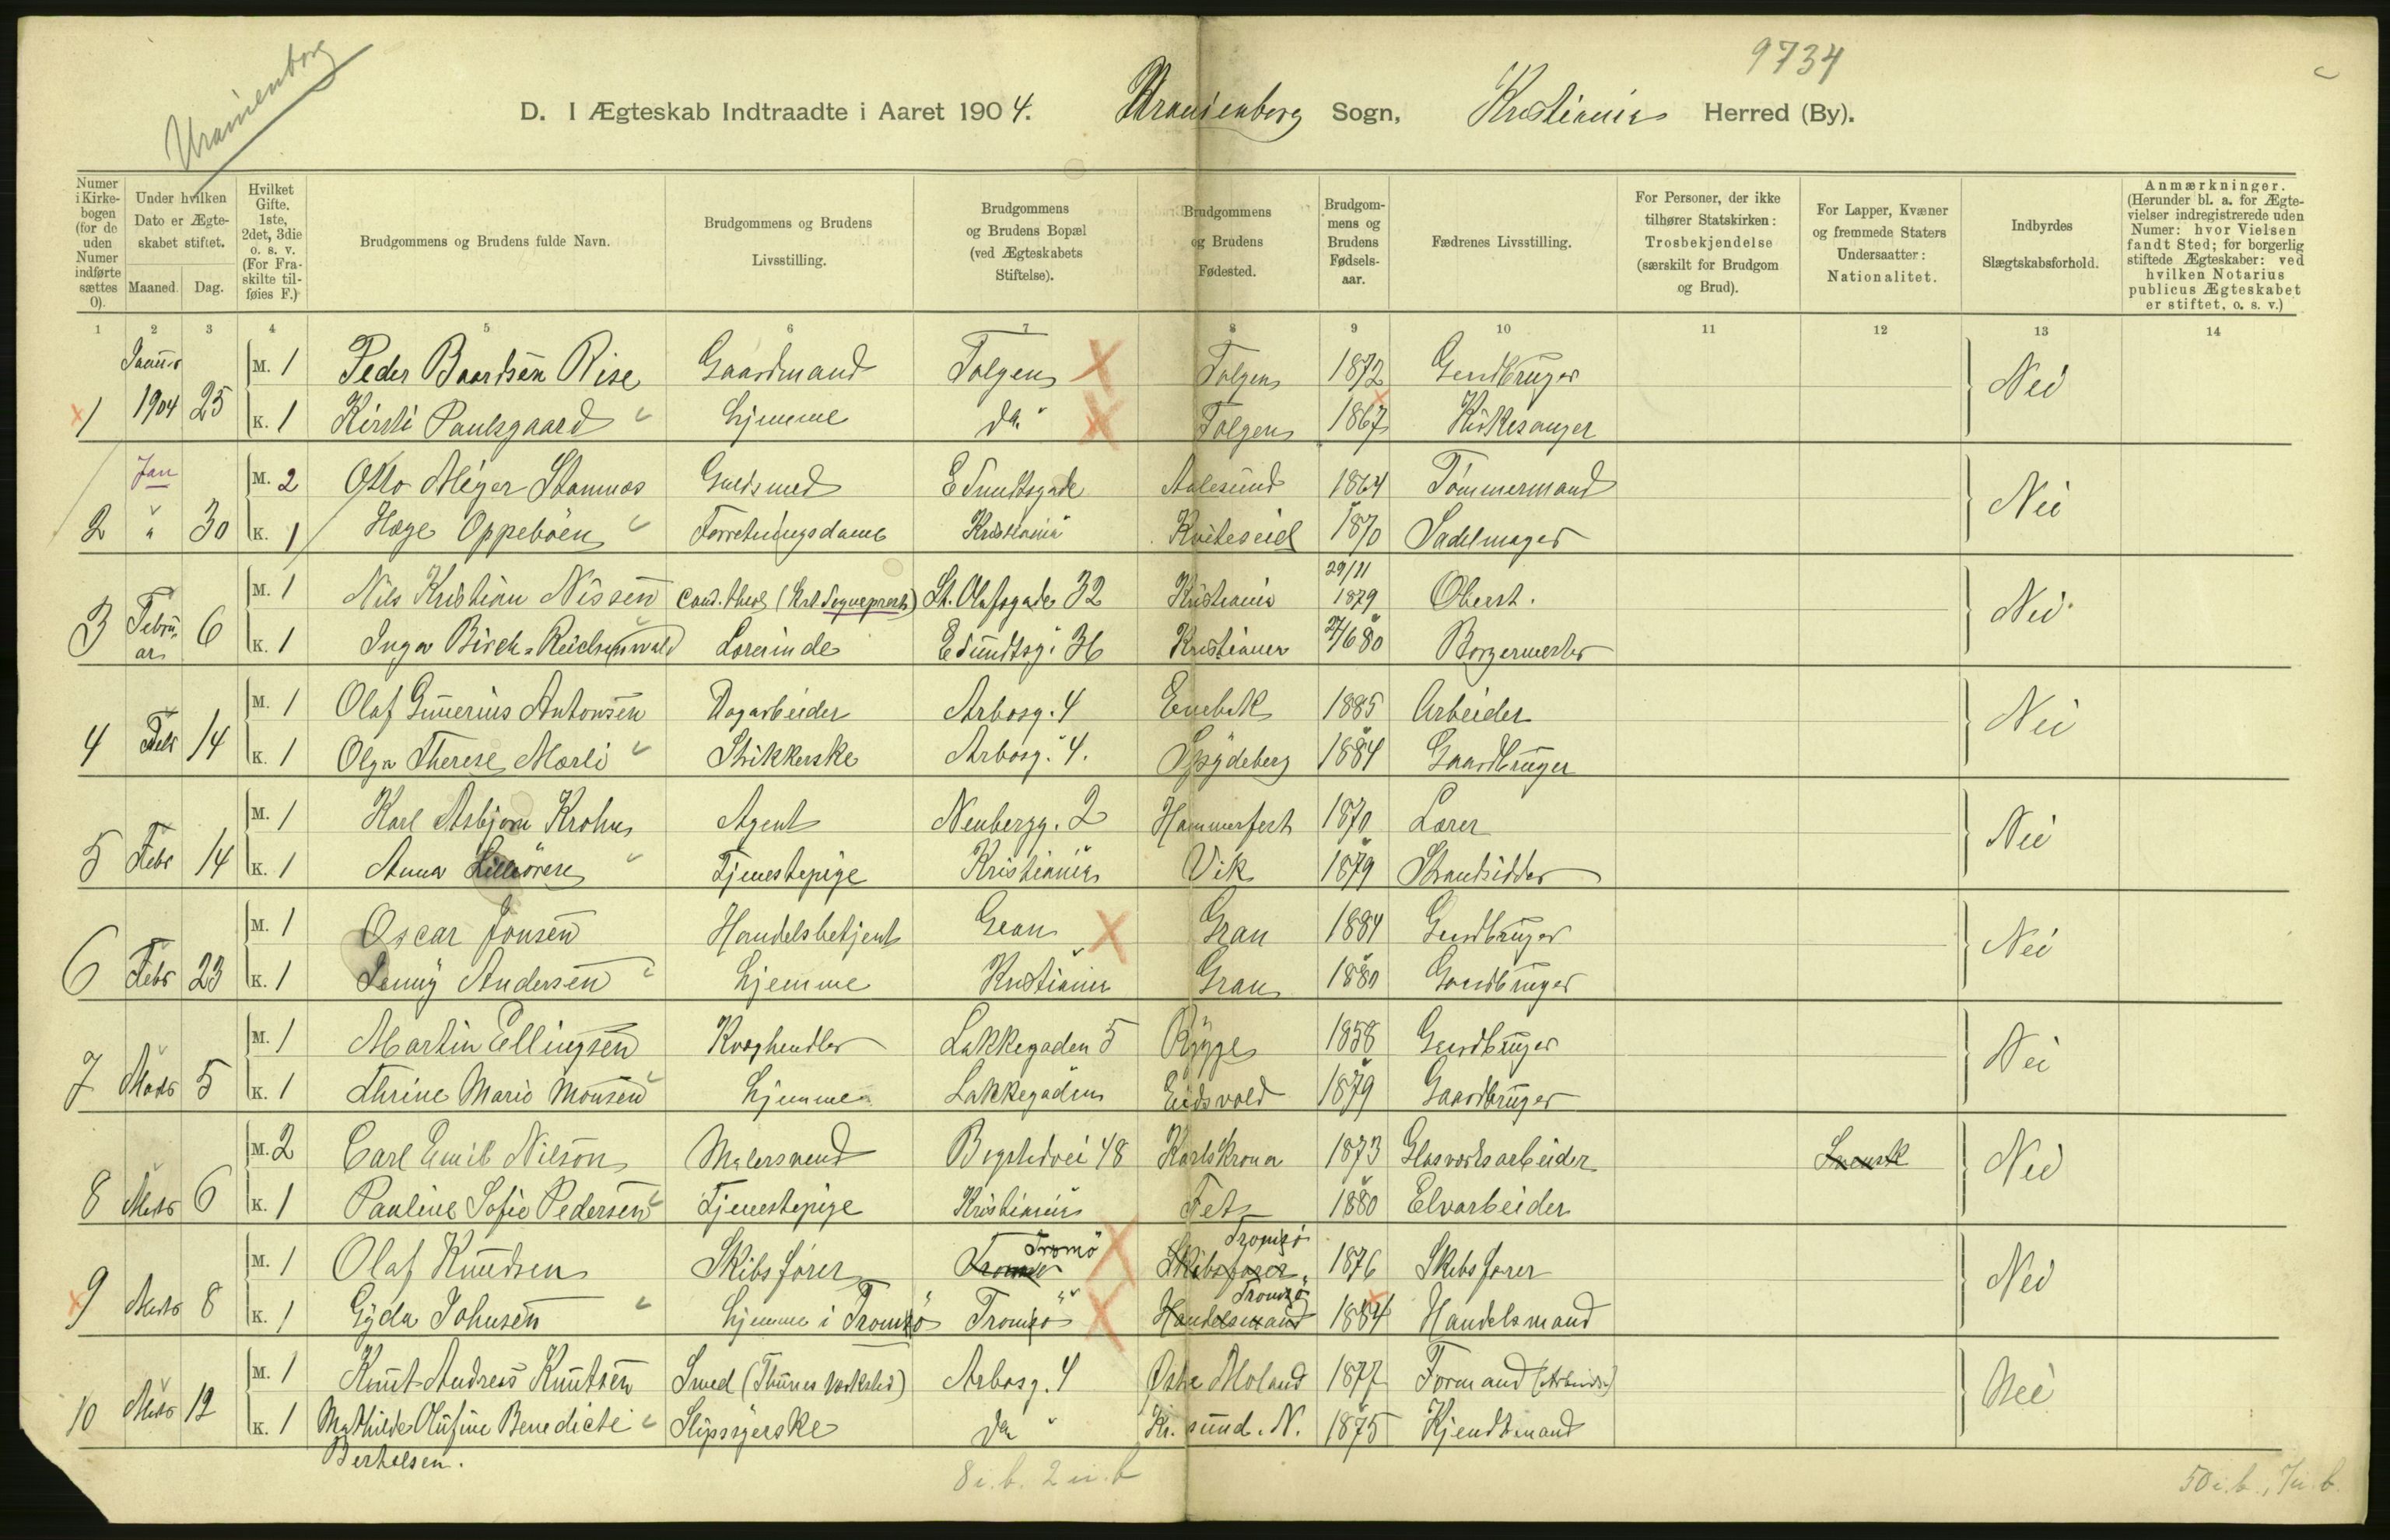 9734
Uranienborg
D. I Ægteskab Indtraadte i Aaret 1904. Uranienborg Sogn, Kristiania Herred (By).
Numer i Kirkebogen (for de uden Numer indførte sættes 0).
Under hvilken Dato er Ægteskabet stiftet.
Maaned. Dag.
Hvilket Gifte. 1ste, 2det, 3die o. s. v. (For Fraskilte tilføies F.)
Brudgommens og Brudens fulde Navn.
Brudgommens og Brudens Livsstilling.
Brudgommens og Brudens Bopæl (ved Ægteskabets Stiftelse).
Brudgommens og Brudens Fødested.
Brudgommens og Brudens Fødselsaar.
Fædrenes Livsstilling.
For Personer, der ikke tilhører Statskirken: Trosbekjendelse (særskilt for Brudgom og Brud).
For Lapper, Kvæner og fremmede Staters Undersaatter: Nationalitet.
Indbyrdes Slægtskabsforhold.
Anmærkninger. (Herunder bl. a. for Ægtevielser indregistrerede uden Numer: hvor Vielsen fandt Sted; for borgerlig stiftede Ægteskaber: ved hvilken Notarius publicus Ægteskabet er stiftet, o. s. v.)
1 2 3 4 5 6 7 8 9 10 11 12 13 14
Januar M. 1 Peder Baardsen Rise Gaardmand Tolgen Tolgen 1872 Gardbruger Nei
1 1904 25 K. 1 Kirsti Paulsgaard hjemme do Tolgen 1867 Kirkesanger
Jan M. 2 Otto Meyer Stamnæs Guldsmed E Sundtsgade Aalesund 1864 Tømmermand Nei
2 " 30 K. 1 Hæge Oppebøen Forretningsdame Kristiania Kviteseid 1870 Sadelmager
M. 1 Nils Kristian Nissen Cand. theol. Sogneprest) St. Olafsgade 32 Kristiania 29/11 1879 Oberst. Nei
3 Februar 6 K. 1 Inga Birch-Reichenwald Lærerinde E Sundtsg. 36 Kristiania 27/6 80 Borgermester
M. 1 Olaf Gunerius Antonsen Dagarbeider Arbosg. 4 Enebak 1885 Arbeider Nei
4 Feb 14 K. 1 Olga Therese Mørli Strikkerske Arbosg. 4. Spydeberg 1884 Gaardbruger
M. 1 Karl Asbjørn Krohn Agent Neubergg. 2 Hammerfest 1870 Lærer Nei
5 Febr 14 K. 1 Anna Tjenestepige Kristiania Vik 1879 Strandsidder
M. 1 Oscar Jonsen Handelsbetjent Gran Gran 1884 Gardbruger Nei
6 Febr 23 K. 1 Jenny Andersen hjemme Kristiania Gran 1880 Gaardbruger
M. 1 Martin Ellingsen Kvæghandler Lakkegaden 5 Rygge 1858 Gardbruger Nei
7 Marts 5 K. 1 Thrine Marie Monsen hjemme Lakkegaden Eidsvold 1879 Gaardbruger
M. 2 Carl Emil Nilson Malersvend Bogstadvei 48 Karlskrona 1873 Glasværksarbeider Svensk Nei
8 Marts 6 K. 1 Pauline Sofie Pedersen Tjenestepige Kristiania Fet 1880 Elvarbeider
M. 1 Olaf Knudsen Skibsfører Tromø Skibsfører Tromsø 1876 Skibsfører Nei
9 Marts 8 K. 1 Gyda Johnsen hjemme i Tromsø Tromsø Handelsmand Tromsø 1884 Handelsmand
M. 1 Knut Andreas Knutsen Smed (Thunes Værksted) Arbosg. 4 Østre Moland 1877 Formand (Arbeids-) Nei
10 Marts 12 K. 1 Mathilde Olufine Benedicte Slipssyerske do Kr. sund. N. 1875 Kjendtmand
Berthelsen.
8 i. b. 2 u. b
50 i. b., 7 u. b.